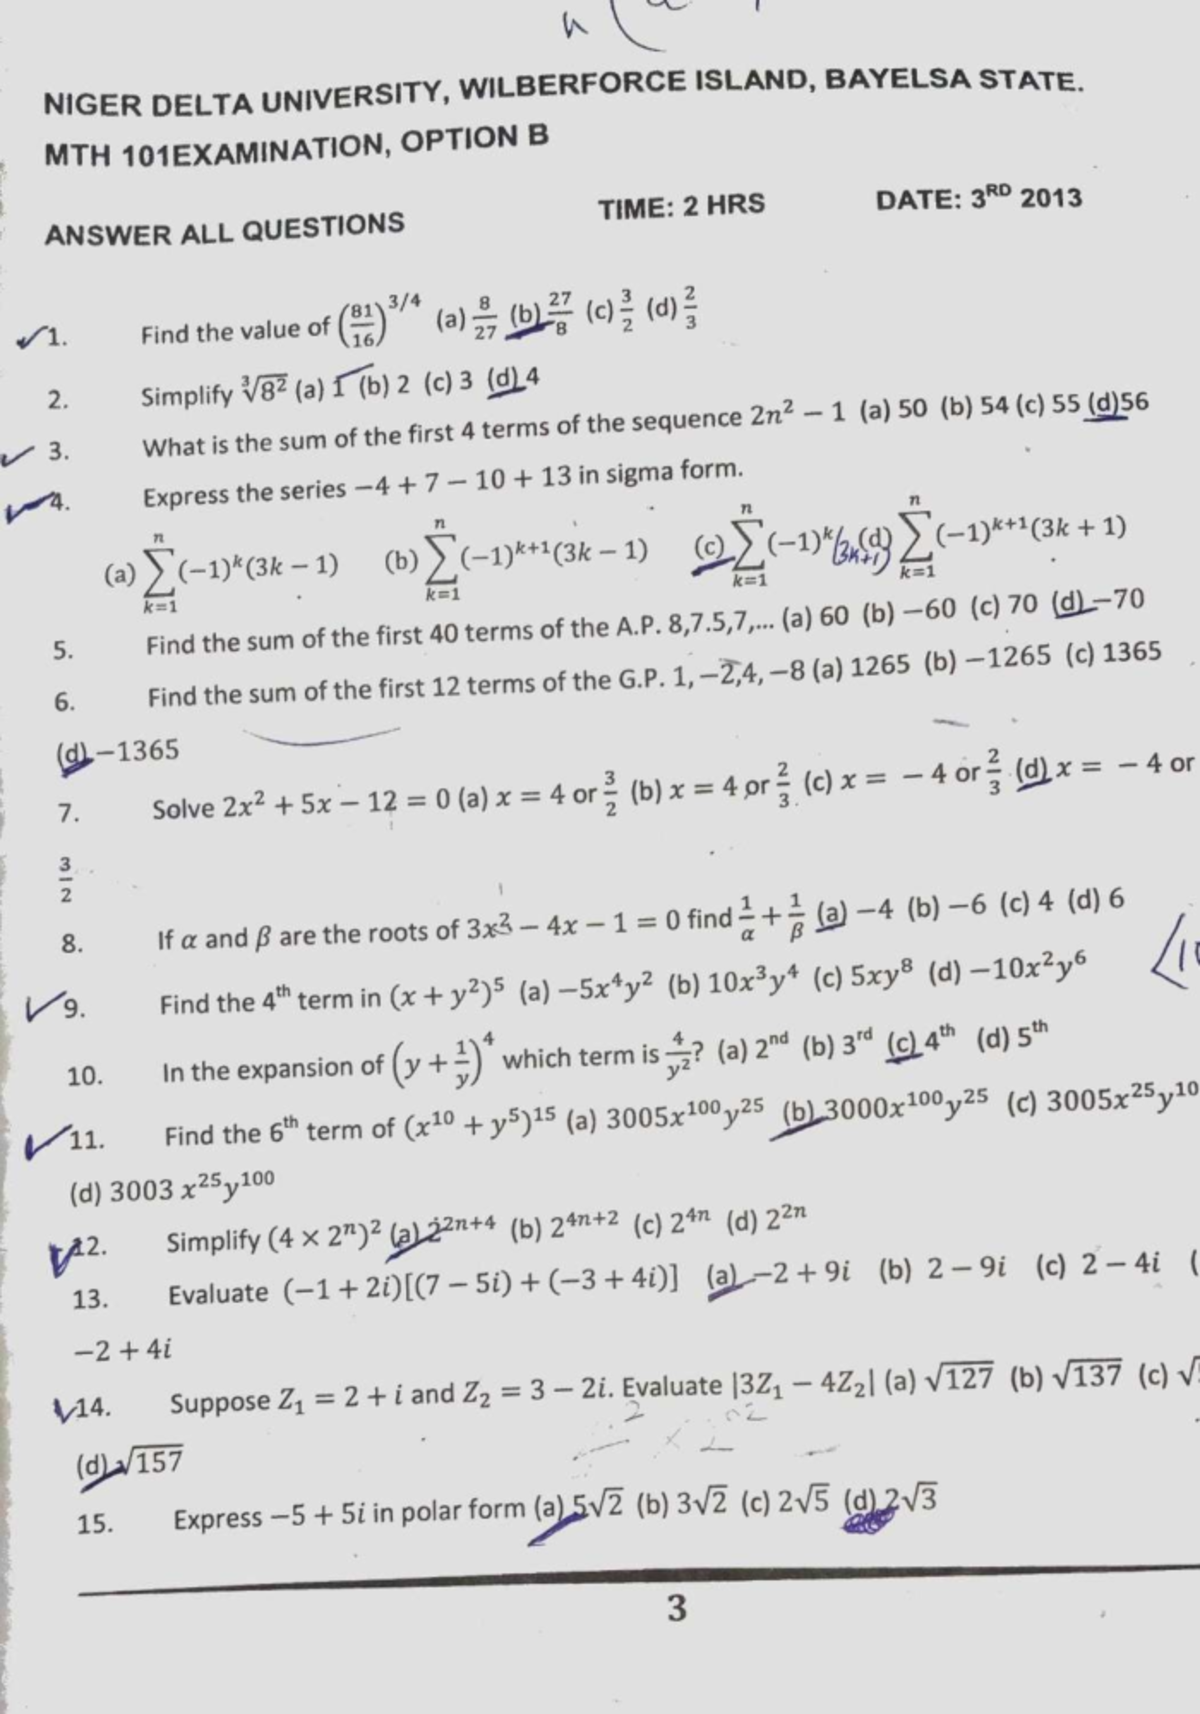 NIGER DELTA UNIVERSITY, WILBERFORCE ISLAND, BAYELSA STATE.
MTH 101EXAMINATION, OPTION B
ANSWER ALL QUESTIONS TIME: 2 HRS DATE: 3RD 2013
1. Find the value of (81/16)^3/4 (a) 8/27 (b) 27/8 (c) 3/2 (d) 2/3
2. Simplify ∛8² (a) 1 (b) 2 (c) 3 (d) 4
3. What is the sum of the first 4 terms of the sequence 2n² − 1 (a) 50 (b) 54 (c) 55 (d)56
4. Express the series −4 + 7 − 10 + 13 in sigma form.
(a) ∑_{k=1}^{n} (−1)^k(3k − 1) (b) ∑_{k=1}^{n} (−1)^{k+1}(3k − 1) (c) ∑_{k=1}^{n} (−1)^k (3k+1) (d) ∑_{k=1}^{n} (−1)^{k+1}(3k + 1)
5. Find the sum of the first 40 terms of the A.P. 8,7.5,7,... (a) 60 (b) −60 (c) 70 (d) −70
6. Find the sum of the first 12 terms of the G.P. 1, −2,4, −8 (a) 1265 (b) −1265 (c) 1365
(d) −1365
7. Solve 2x² + 5x − 12 = 0 (a) x = 4 or 3/2 (b) x = 4 or 2/3 (c) x = − 4 or 2/3 (d) x = − 4 or
3/2
8. If α and β are the roots of 3x² − 4x − 1 = 0 find 1/α + 1/β (a) −4 (b) −6 (c) 4 (d) 6
9. Find the 4th term in (x + y²)⁵ (a) −5x⁴y² (b) 10x³y⁴ (c) 5xy⁸ (d) −10x²y⁶
10. In the expansion of (y + 1/y)⁴ which term is 4/y²? (a) 2nd (b) 3rd (c) 4th (d) 5th
11. Find the 6th term of (x¹⁰ + y⁵)¹⁵ (a) 3005x¹⁰⁰y²⁵ (b) 3000x¹⁰⁰y²⁵ (c) 3005x²⁵y¹⁰
(d) 3003 x²⁵y¹⁰⁰
12. Simplify (4 × 2ⁿ)² (a) 2^{2n+4} (b) 2^{4n+2} (c) 2^{4n} (d) 2^{2n}
13. Evaluate (−1 + 2i)[(7 − 5i) + (−3 + 4i)] (a) −2 + 9i (b) 2 − 9i (c) 2 − 4i (
−2 + 4i
14. Suppose Z₁ = 2 + i and Z₂ = 3 − 2i. Evaluate |3Z₁ − 4Z₂| (a) √127 (b) √137 (c) √
(d) √157
15. Express −5 + 5i in polar form (a) 5√2 (b) 3√2 (c) 2√5 (d) 2√3
3